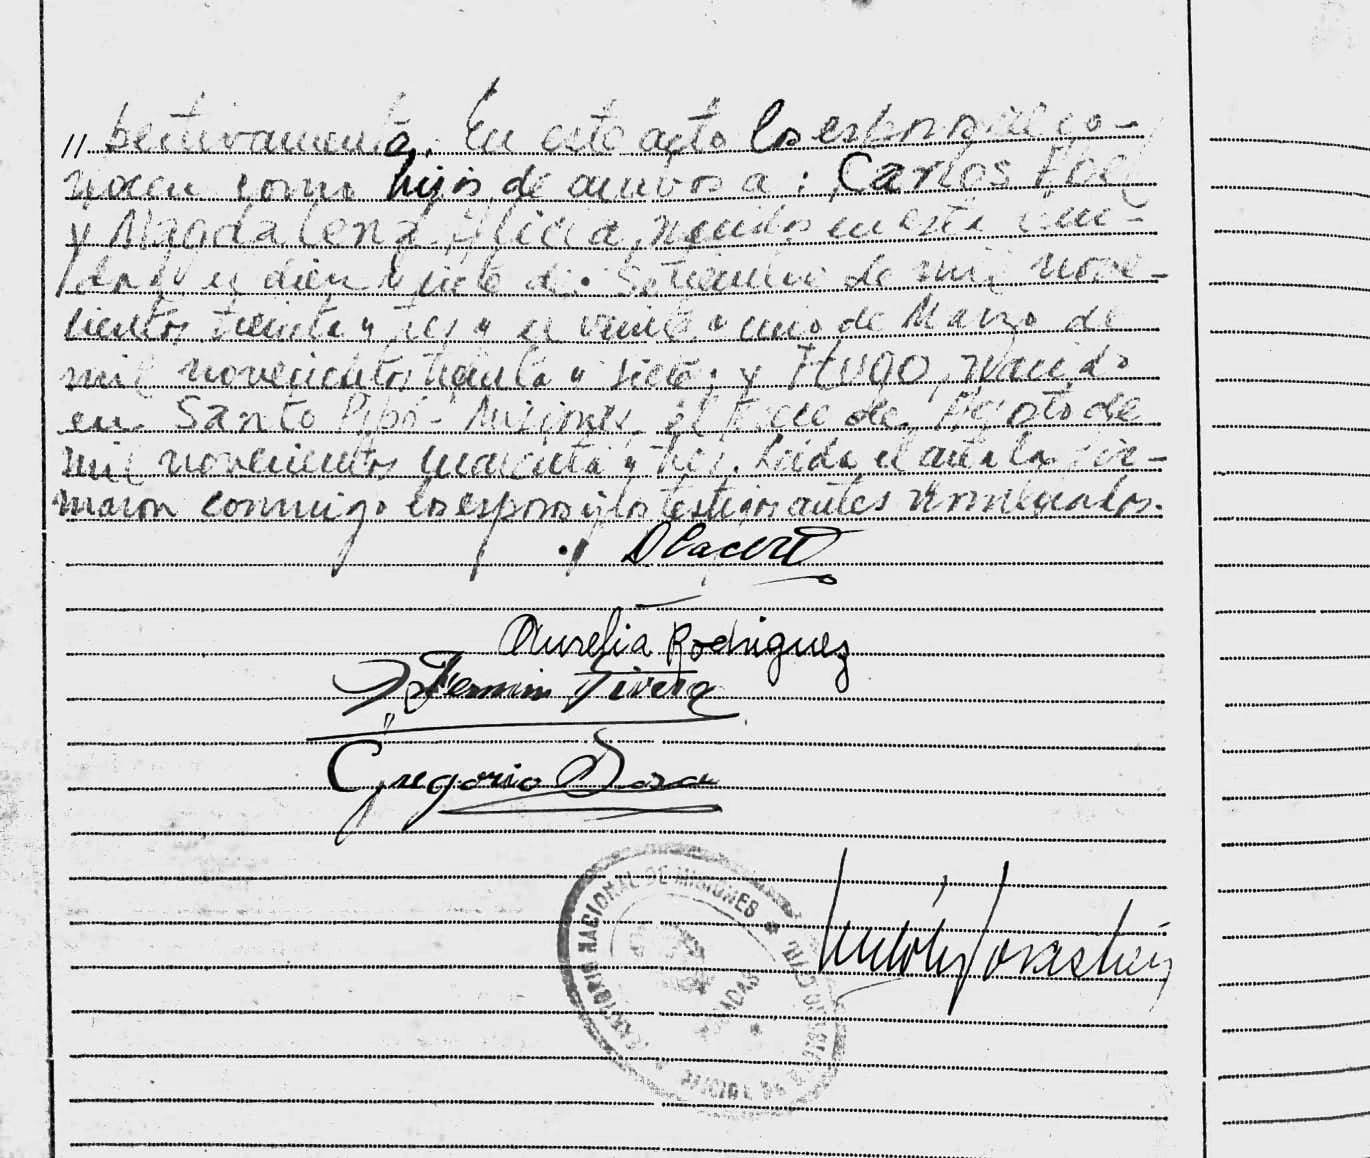 // pectivamente. En este acto los esposos reco-
nocen como hijos de ambos a: Carlos
y Magdalena Alicia, nacidos en esta ciu-
dad el diez y siete de Setiembre de mil nove-
cientos treinta y tres y el veinte y uno de Marzo de
mil novecientos treinta y siete; y Hugo, nacido
en Santo Pipó - Misiones, el trece de Agosto de
mil novecientos cuarenta y tres. Leída el acta la fir-
maron conmigo los esposos y los testigos antes nombrados.
Aurelia Rodriguez
Fermin Rivera
Gregorio Sosa
TERRITORIO NACIONAL DE MISIONES
POSADAS